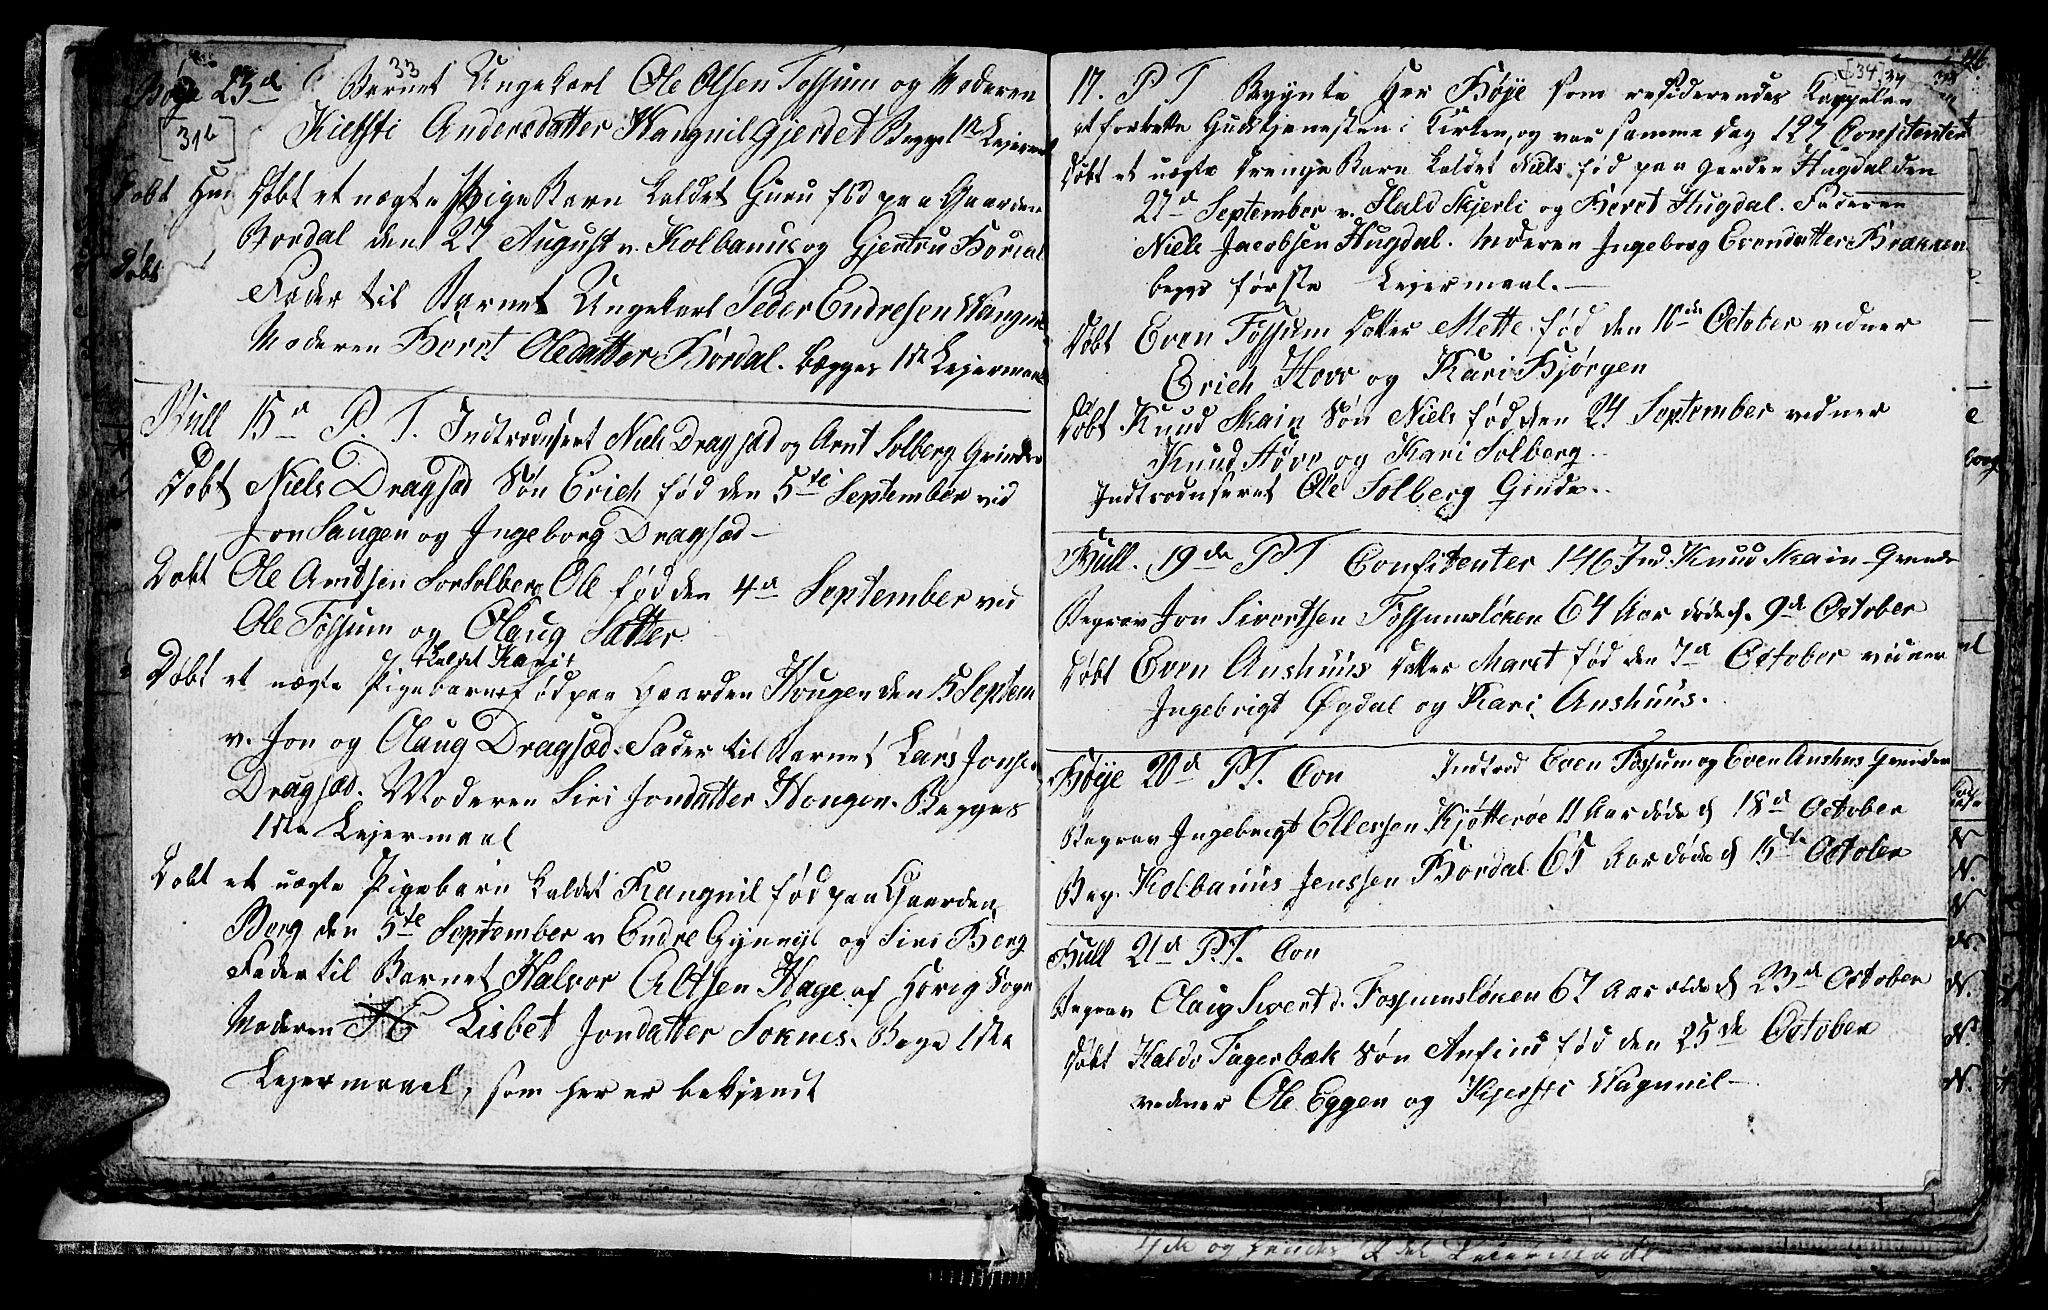 33
til Barnet Ungekarl Ole Olsen Fossum og Moderen
[31b]
Kiersti Andersdatter Wangnilgjerdet Begge 1te Lejermaal
Døbt et uægte Pige Barn kaldet Guru fød paa Gaarden
Bordal den 27 August v. Kolbanus og Gjertru Bordal
Fader til Barnet Ungekarl Peder Endresen Wangnil
Moderen Beret Olsdatter Bordal. begges 1te Lejermaal
Bull 15d P. T. Indtroduseret Niels Dragsæd og Arnt Solberg Grinder
Døbt Niels Dragsæd Søn Erich fød den 5te September vid
Jon Haugen og Ingeborg Dragsæd
Døbt Ole Arndtsen Solberg Ole fød den 4d September vid
Ole Fossum og Olaug Sætter
kaldet Kari
Døbt et uægte Pigebarn fød paa Gaarden Hougen den 13 Septem
v. Jon og Olaug Dragsæd. Fader til Barnet Lars Jonsen
Dragsæd. Moderen Siri Jondatter Hougen. Begges
1ste Lejermaal
Døbt et uægte Pigebarn kaldet Rangnil fød paa Gaarden
Berg den 5te September v Endre Gynnyl og Siri Berg
Fader til Barnet Halvor Altsen Hage af Børig Sogn
Moderen Lisbet Jondatter Soknes. Bege 1ste
Lejermaal, som her er bekjendt
[34] 34
17. P T Begynte Her Bøye som residerendes Kappelan
at forrette Gudstjenesten i Kirken, og var samme dag 127 Confitenter
Døbt et uægte Drenge Barn kaldet Niels fød paa Garden Hugdal den
27d September v. Hald Skjerli og Beret Hugdal. Faderen
Niels Jacobsen Hugdal. Moderen Ingeborg Evendatter Brækken
begge første Lejermaal.
Døbt Even Fossum Datter Mette fød den 10de October vidner
Erich Hovr og Kari Bjørgen
Døbt Knud Skain Søn Niels fød den 24 September vidner
Knud Hovr og Kari Solberg
Indtroduseret Ole Solberg Grinde.
Bull. 19de P T Confitenter 146 Ind. Knud Skain Grinde
Begrav Jon Sivertsen Fossumsløkken 64 Aar døde d. 9d October
Døbt Even Anshuus Datter Maret fød den 7d October vidner
Ingebrigt Øgdal og Kari Anshuus.
Bøye 20d P T. Con Indtrod Even Fossum og Even Anshus Grinder
Begrav Ingebregt Ellersen Kjøtterøe 11 Aar døde d 18d October
Beg. Kolbanus Jenssen Bordal 65 Aar døde d 15te October
Bull 21d P.T. Con
Begrav Olaug Sivert d. Fossumsløkken 67 Aar døde d 23d October
Døbt Haldo Fagerbæk Søn Anfind fød den 25de October
vedner Ole Eggen og Kjersti Wagnnil